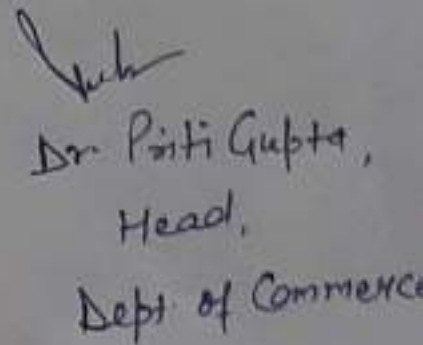 Dr. Priti Gupta,
Head,
Dept. of Commerce